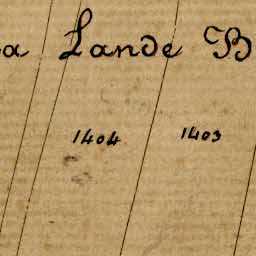 a Lande B
1404 1403